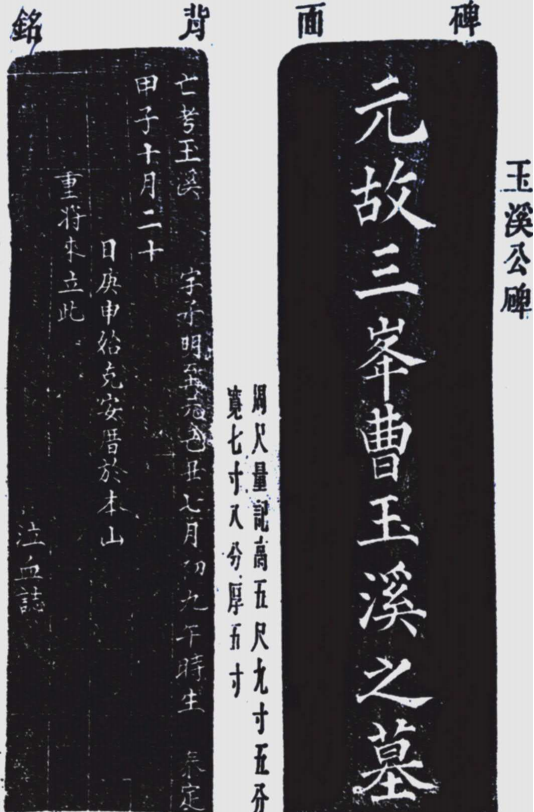 玉溪公碑
碑面
元故三峯曹玉溪之墓
周尺量記高五尺九寸五分
寬七寸八分厚五寸
背銘
亡考王溪 字子明至元乙丑七月初九午時生 泰定
甲子十月二十
日庚申始克安厝於本山
重將來立此
泣血誌